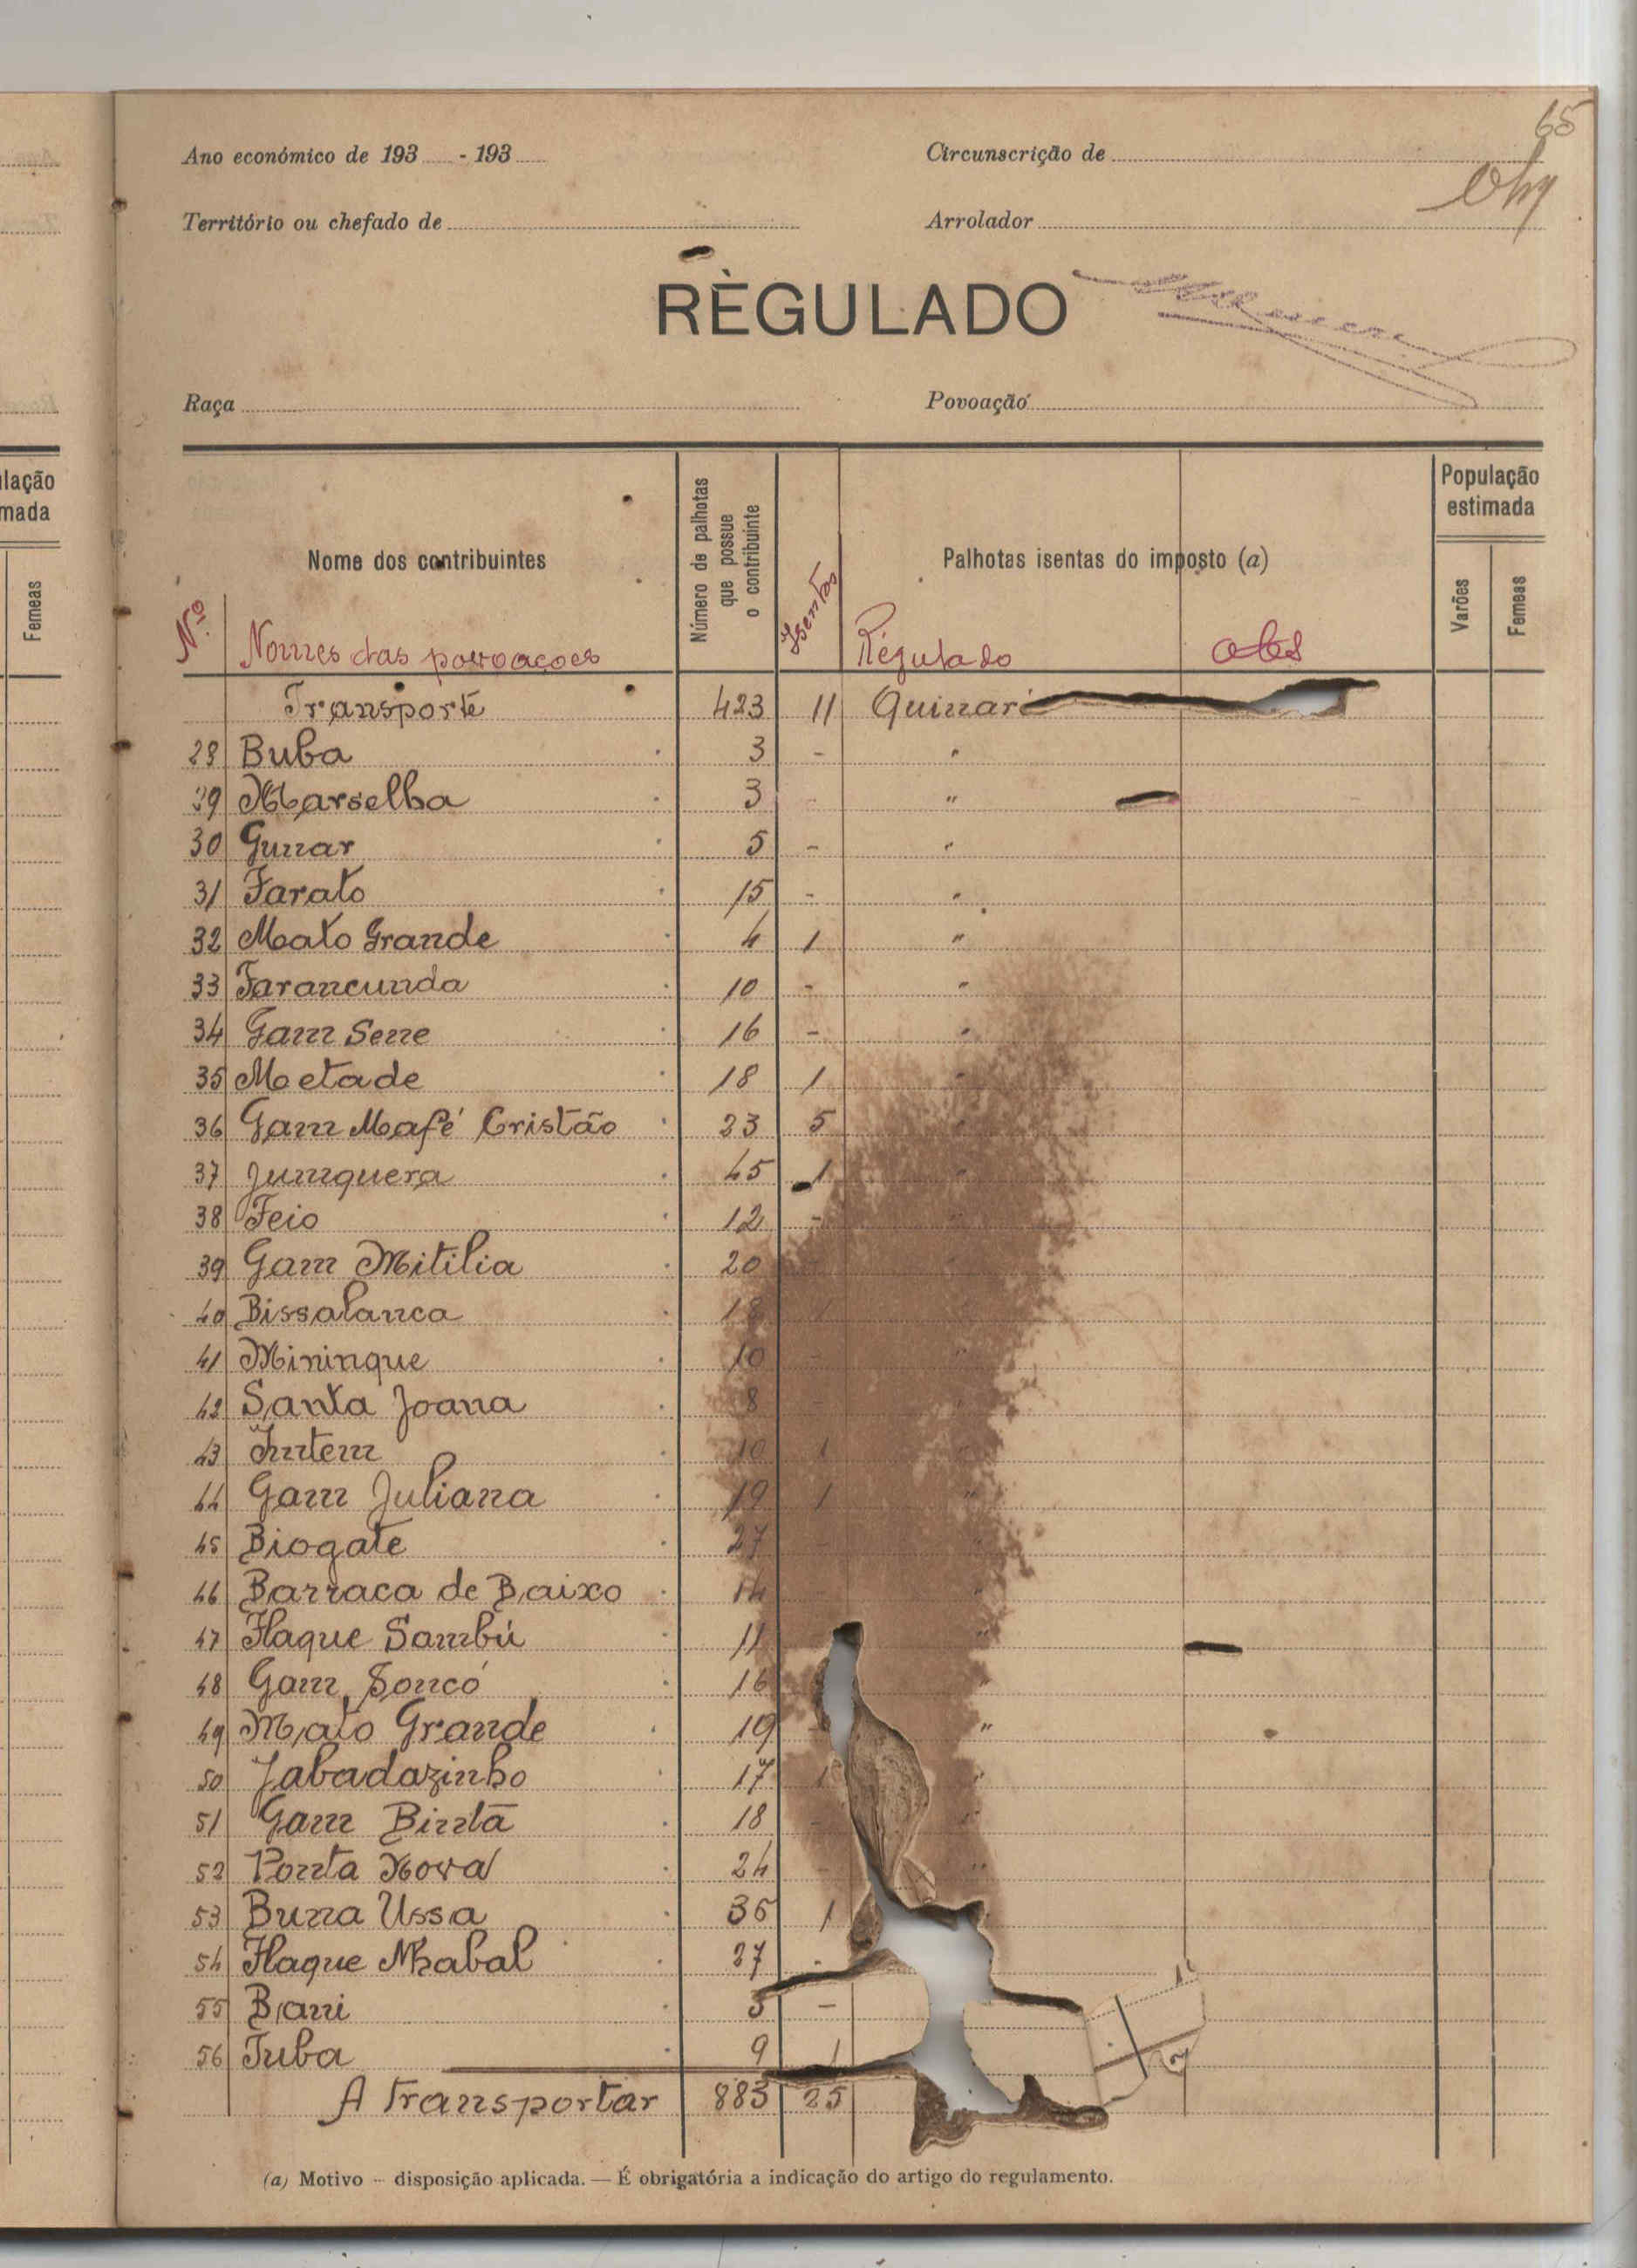 65
Ano económico de 193 - 193 Circunscrição de
Território ou chefado de Arrolador
REGULADO
Raça Povoação
lação
mada
Femeas
Nome dos contribuintes
Número de palhotas que possue o contribuinte
Palhotas isentas do imposto (a)
População estimada
Varões Femeas
Nº. Nomes das povoações Isentos Régulado obs
Transporte 423 11 Quinará
28 Buba 3 - "
29 Marselha 3 - "
30 Gunar 5 - "
31 Farato 15 - "
32 Mato Grande 4 1 "
33 Farancunda 10 - "
34 Gam Sene 16 - "
35 Metade 18 1 "
36 Gam Mafé Cristão 23 5 "
37 Junquera 45 1 "
38 Feio 12 - "
39 Gam Mitilia 20 - "
40 Bissalanca 18 1 "
41 Mininque 10 - "
42 Santa Joana 8 - "
43 Intem 10 1 "
44 Gam Juliana 19 1 "
45 Biogate 27 - "
46 Barraca de Baixo 14 - "
47 Flaque Sambú 11 "
48 Gam Soncó 16 "
49 Mato Grande 19 - "
50 Jabadazinho 17 1 "
51 Gam Bintã 18 - "
52 Ponta Nova 24 - "
53 Buna Ussa 35 1
54 Flaque Nhabal 27 -
55 Bani 3 -
56 Tuba 9 1
A Transportar 883 25
(a) Motivo - disposição aplicada. — É obrigatória a indicação do artigo do regulamento.